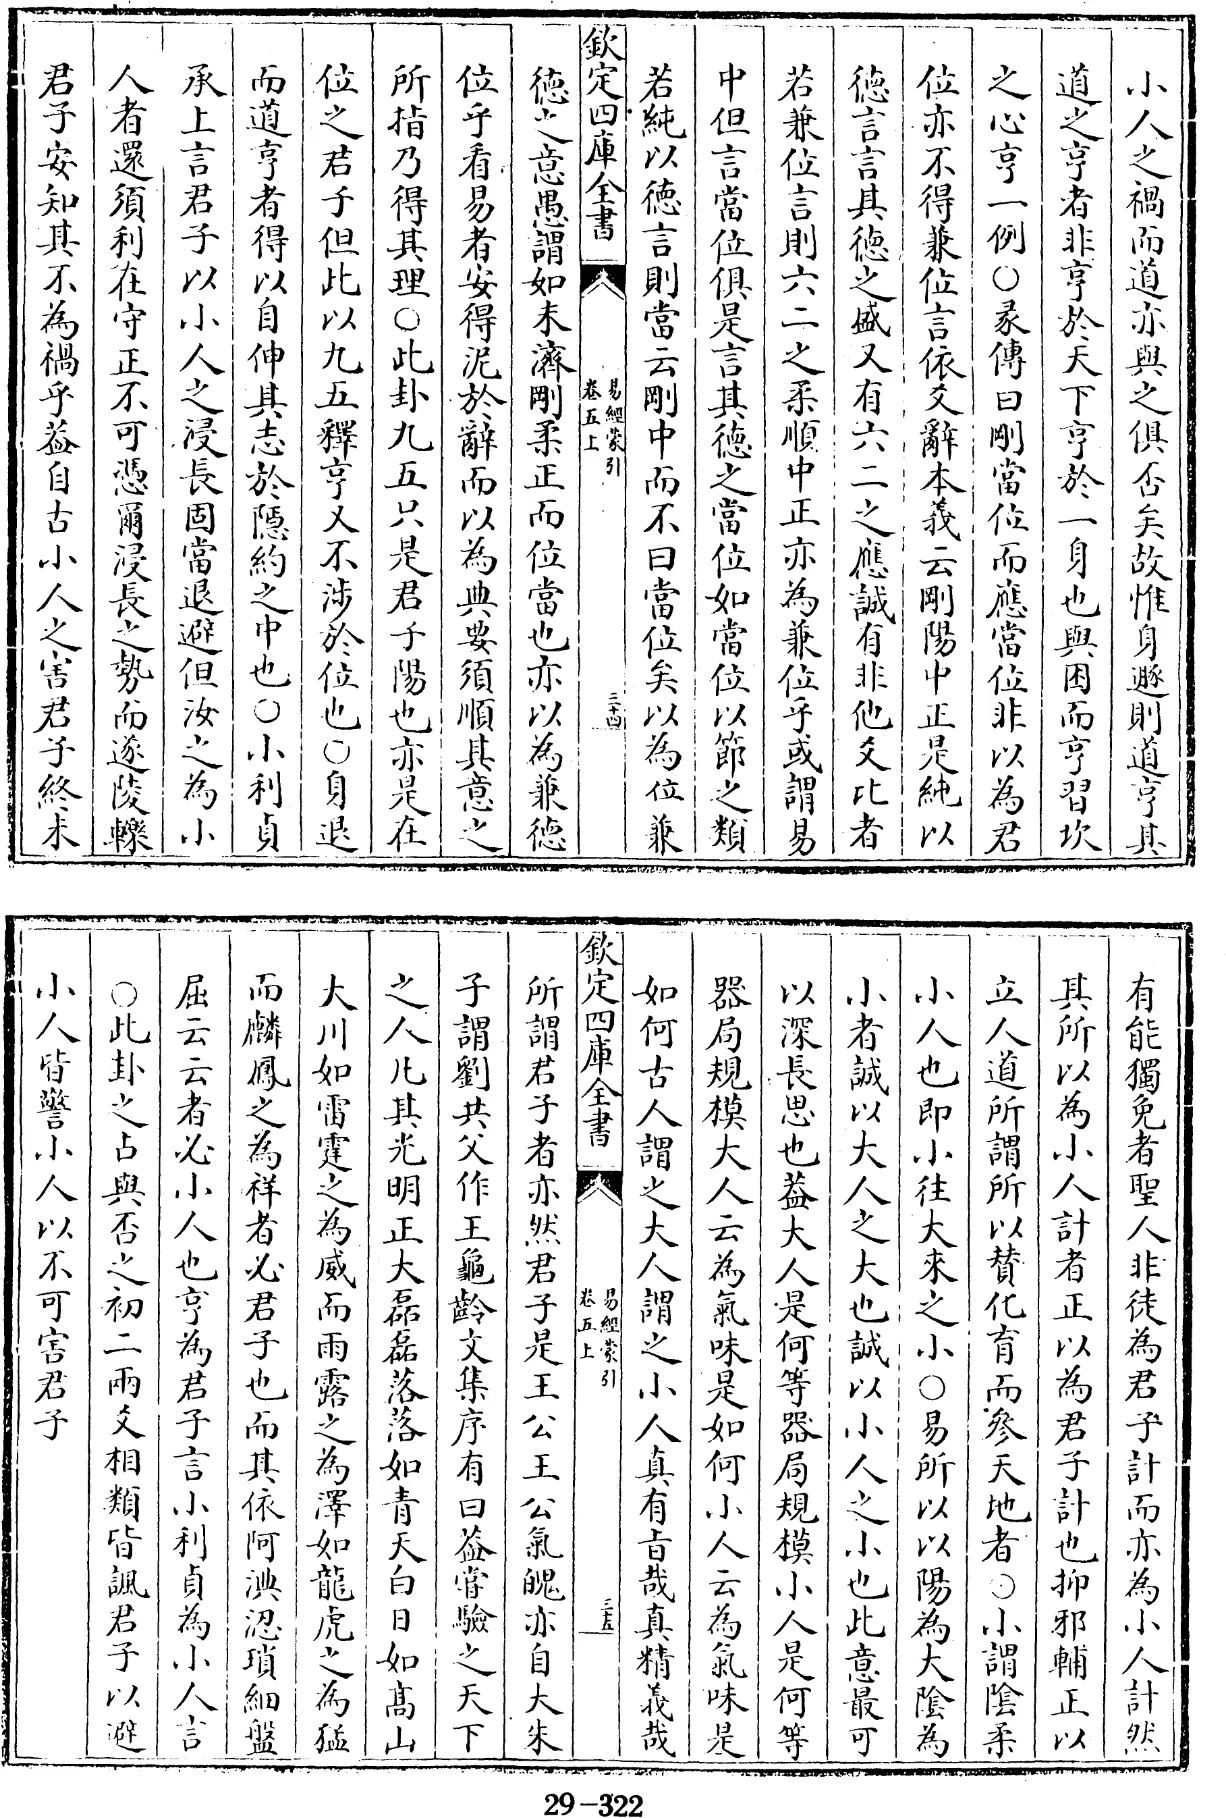 小人之禍而道亦與之俱否矣故惟身遯則道亨其
道之亨者非亨於天下亨於一身也與困而亨習坎
之心亨一例○彖傳曰剛當位而應當位非以為君
位亦不得兼位言依爻辭本義云剛陽中正是純以
德言言其德之盛又有六二之應誠有非他爻比者
若兼位言則六二之柔順中正亦為兼位乎或謂易
中但言當位俱是言其德之當位如當位以節之類
若純以德言則當云剛中而不曰當位矣以為位兼
欽定四庫全書
易經蒙引
卷五上
三十四
德之意愚謂如未濟剛柔正而位當也亦以為兼德
位乎看易者安得泥於辭而以為典要須順其意之
所指乃得其理○此卦九五只是君子陽也亦是在
位之君子但此以九五釋亨又不涉於位也○身退
而道亨者得以自伸其志於隱約之中也○小利貞
承上言君子以小人之浸長固當退避但汝之為小
人者還須利在守正不可憑爾浸長之勢而遂陵轢
君子安知其不為禍乎葢自古小人之害君子終未
有能獨免者聖人非徒為君子計而亦為小人計然
其所以為小人計者正以為君子計也抑邪輔正以
立人道所謂所以賛化育而參天地者○小謂陰柔
小人也即小往大來之小○易所以以陽為大陰為
小者誠以大人之大也誠以小人之小也此意最可
以深長思也葢大人是何等器局規模小人是何等
器局規模大人云為氣味是如何小人云為氣味是
如何古人謂之大人謂之小人真有旨哉真精義哉
欽定四庫全書
易經蒙引
卷五上
三十五
所謂君子者亦然君子是王公王公氣魄亦自大朱
子謂劉共父作王龜齡文集序有曰葢嘗驗之天下
之人凡其光明正大磊磊落落如青天白日如髙山
大川如雷霆之為威而雨露之為澤如龍虎之為猛
而麟鳳之為祥者必君子也而其依阿淟涊瑣細盤
屈云云者必小人也亨為君子言小利貞為小人言
○此卦之占與否之初二兩爻相類皆諷君子以避
小人皆警小人以不可害君子
29-322